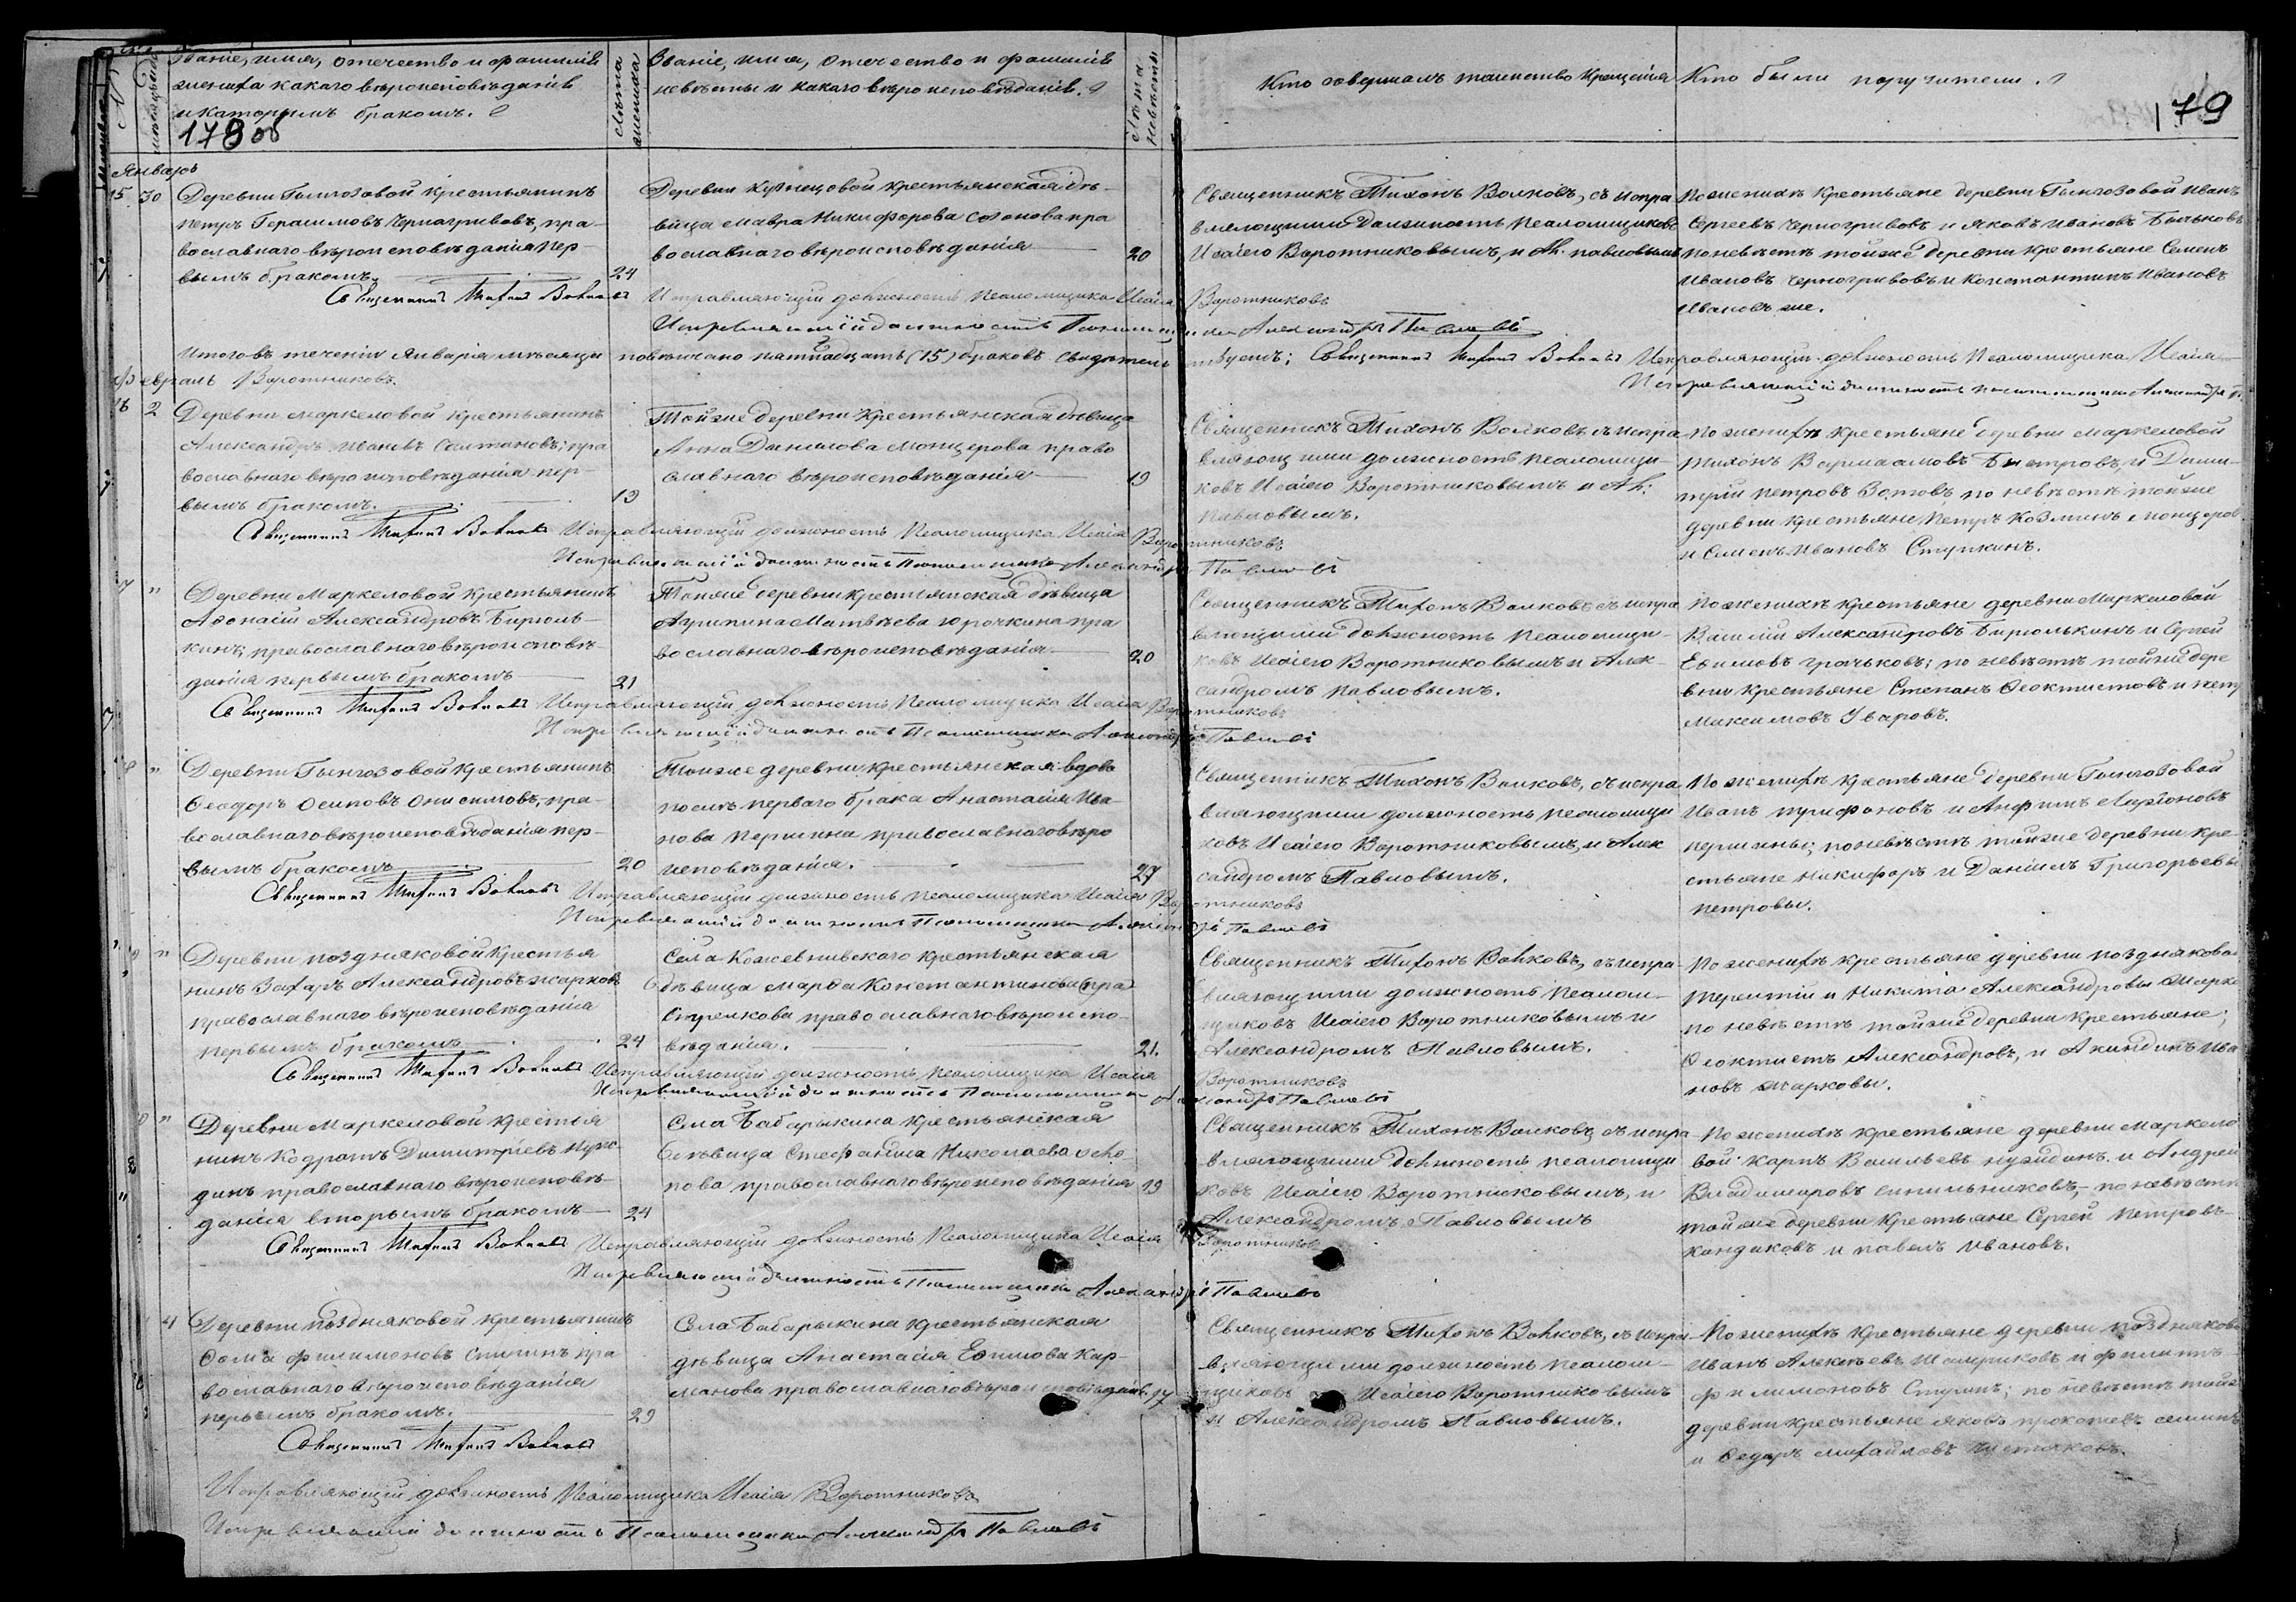 Званіе, имя, отечество и фамилія
жениха какаго вѣроисповѣданія
и каторымъ бракомъ.
178 об
Лѣта
жениха
Званіе, имя, отечество и фамилія
невѣсты и какаго вѣроисповѣданія.
Лѣта
невѣсты
Кто совершалъ таинство Крещенія
Кто были поручители.
179
Январь
15 30
Деревни Гынгозовой крестьянинъ
Петръ Герасимовъ Черногривовъ, пра-
вославнаго вѣроисповѣданія пер-
вымъ бракомъ.
24
Деревни Кузнецовой крестьянская дѣ-
вица Мавра Никифорова Созонова пра
вославнаго вѣроисповѣданія
20
Священникъ Тихонъ Волковъ, съ испра
вляющими должность псаломщиковъ
Исаіею Воротниковымъ, и Ал. Павловымъ
По женихѣ крестьяне деревни Гынгозовой Иванъ
Сергеевъ Черногривовъ и Яковъ Ивановъ Быковъ
по невѣстѣ тойже деревни крестьяне Семенъ
Ивановъ Черногривовъ и Константинъ Ивановъ
Ивановъ же.
Священникъ Тихонъ Волковъ Исправляющій должность Псаломщика Исаія Воротниковъ
Исправляющій должность Псаломщика Александръ Павловъ
Итого въ теченіи Января мѣсяца повѣнчано пятнадцать (15) браковъ свидѣтельствуемъ; Священникъ Тихонъ Волковъ Исправляющій должность Псаломщика Исаія
Воротниковъ.
Исправляющій должность псаломщика Александръ П.
Февраль
16 2
Деревни Маркеловой крестьянинъ
Александръ Ивановъ Салтановъ, пра
вославнаго вѣроисповѣданія пер-
вымъ бракомъ.
19
Тойже деревни крестьянская дѣвица
Анна Данилова Монцерова право
славнаго вѣроисповѣданія
19
Священникъ Тихонъ Волковъ съ испра
вляющими должность псаломщи-
ковъ Исаіею Воротниковымъ и Ал.
Павловымъ.
По женихѣ крестьяне деревни Маркеловой
Тихонъ Варлаамовъ Быстровъ, и Дими-
трій Петровъ Зотовъ по невѣстѣ тойже
деревни крестьяне Петръ Козминъ Монцеров
и Семенъ Ивановъ Ступкинъ.
Священникъ Тихонъ Волковъ Исправляющій должность Псаломщика Исаія Воротниковъ
Исправляющій должность Псаломщика Александръ Павловъ
17 "
Деревни Маркеловой крестьянинъ
Афонасій Александровъ Бирюль-
кинъ, православнаго вѣроисповѣ-
данія первымъ бракомъ
21
Тойже деревни крестьянская дѣвица
Агрипина Матвѣева Юрочкина пра
вославнаго вѣроисповѣданія
20
Священникъ Тихонъ Волковъ съ испра
вляющими должность псаломщи-
ковъ Исаіею Воротниковымъ и Алек-
сандромъ Павловымъ.
По женихѣ крестьяне деревни Маркеловой
Василій Александровъ Бирюлькинъ и Сергей
Ефимовъ Грачьковъ; по невѣстѣ тойже дере
вни крестьяне Степанъ Феоктистовъ и Петръ
Максимовъ Уваровъ.
Священникъ Тихонъ Волковъ Исправляющій должность Псаломщика Исаія Воротниковъ
Исправляющій должность Псаломщика Александръ Павловъ
18 "
Деревни Гынгозовой крестьянинъ
Феодоръ Осиповъ Онисимовъ, пра-
вославнаго вѣроисповѣданія пер-
вымъ бракомъ
20
Тойже деревни крестьянская вдова
послѣ перваго брака Анастасія Ива-
нова Першина православнаго вѣро
исповѣданія.
27
Священникъ Тихонъ Волковъ, съ испра
вляющими должность псаломщи
ковъ Исаіею Воротниковымъ, и Алек
сандромъ Павловымъ.
По женихѣ крестьяне деревни Гынгозовой
Иванъ Трифоновъ и Анфимъ Ларіоновъ
Першины; по невѣстѣ тойже деревни кре-
стьяне Никифоръ и Даніилъ Григорьевы
Петровы.
Священникъ Тихонъ Волковъ Исправляющій должность псаломщика Исаія Воротниковъ
Исправляющій должность Псаломщика Александръ Павловъ
19 "
Деревни Поздняковой крестья
нинъ Захаръ Александровъ Жарковъ
православнаго вѣроисповѣданія
первымъ бракомъ
24
Села Кожевниковскаго крестьянская
дѣвица Марфа Константинова (пра)
Стрелкова православнаго вѣроиспо-
вѣданія.
21.
Священникъ Тихонъ Волковъ, съ испра-
вляющими должность псалом-
щиковъ Исаіею Воротниковымъ и
Александромъ Павловымъ.
По женихѣ крестьяне деревни Позднякова
Терентій и Никита Александровы Жарко
по невѣстѣ тойже деревни крестьяне;
Феоктистъ Александровъ, и Акиндинъ Ива
новъ Марковы.
Священникъ Тихонъ Волковъ Исправляющій должность псаломщика Исаія Воротниковъ
Исправляющій должность Псаломщика Александръ Павловъ
"
Деревни Маркеловой крестья
нинъ Кодратъ Димитріевъ Нуж-
динъ православнаго вѣроисповѣ-
данія вторымъ бракомъ
24
Села Бабарыкина крестьянская
дѣвица Стефанида Николаева
православнаго вѣроисповѣданія
19
Священникъ Тихонъ Волковъ съ испра
вляющими должность псаломщи
ковъ Исаіею Воротниковымъ, и
Александромъ Павловымъ
По женихѣ крестьяне деревни Маркело
вой Карпъ Васильевъ Нуждинъ и Андрей
Владимировъ Синильниковъ, - по невѣстѣ
тойже деревни крестьяне Сергей Петровъ
Кандаковъ и Павелъ Ивановъ.
Священникъ Тихонъ Волковъ Исправляющій должность Псаломщика Исаія Воротниковъ
Исправляющій должность Псаломщика Александръ Павловъ
4
Деревни Поздняковой крестьянинъ
Фома Филимоновъ Ступинъ пра
вославнаго вѣроисповѣданія
первымъ бракомъ.
29
Села Бабарыкина крестьянская
дѣвица Анастасія Ефимова Кар-
манова православнаго вѣроисповѣданія
17
Священникъ Тихонъ Волковъ, съ испра
вляющими должность псалом-
щиковъ Исаіею Воротниковымъ
и Александромъ Павловымъ.
По женихѣ крестьяне деревни Поздняково
Иванъ Алексѣевъ и Филипъ
Филимоновъ Ступинъ; по невѣстѣ тойже
деревни крестьяне Яковъ Прокопьевъ
и Федоръ Михайловъ Чистяковъ.
Священникъ Тихонъ Волковъ
Исправляющій должность Псаломщика Исаія Воротниковъ
Исправляющій должность Псаломщика Александръ Павловъ